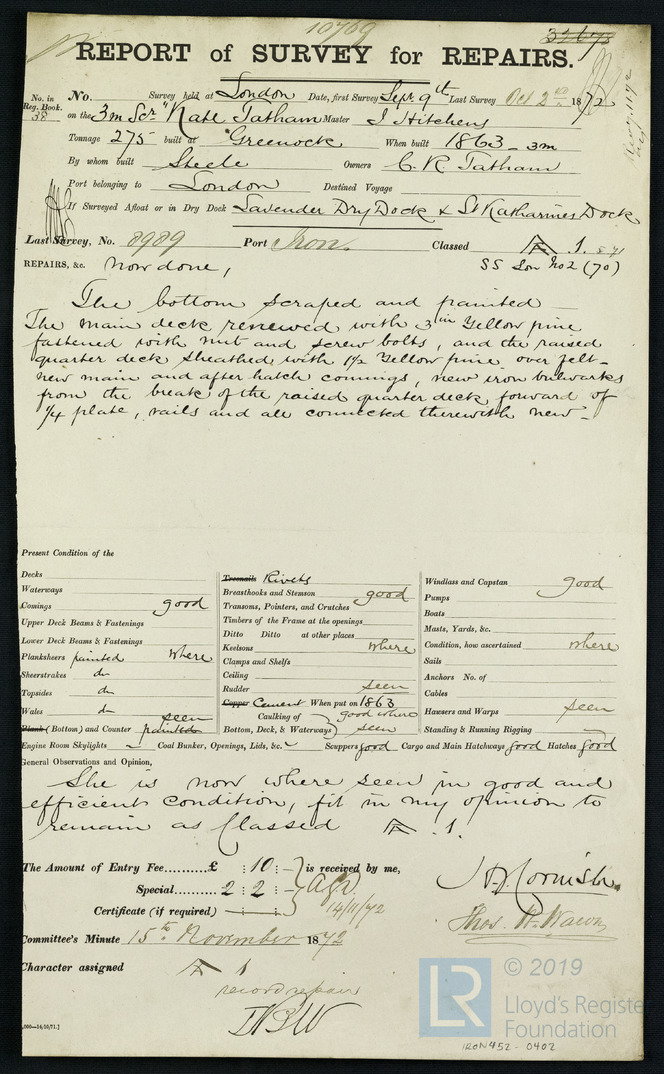 10769
32673
REPORT of SURVEY for REPAIRS.
No. in Reg. Book.
38
No. Survey held at London Date, first Survey Sept. 9th Last Survey Oct 2nd 1872
on the 3m Scr "Kate Tatham Master J Hitchens
Tonnage 275 built at Greenock When built 1863 - 3m
By whom built Steele Owners C. R Tatham
Port belonging to London Destined Voyage
If Surveyed Afloat or in Dry Dock Lavender Dry Dock & St Katharines Dock
Last Survey, No. 8989 Port Iron. Classed A 1. 5 71
REPAIRS, &c. Now done, SS Lon No 2 (70)
The bottom scraped and painted
The main deck renewed with 3 in Yellow pine
fastened with nut and screw bolts, and the raised
quarter deck sheathed with 1½ Yellow pine over felt -
new main and after hatch comings, new iron bulwarks
from the break of the raised quarter deck forward of
¼ plate, rails and all connected therewith new -
Present Condition of the
Decks
Waterways
Comings good
Upper Deck Beams & Fastenings
Lower Deck Beams & Fastenings
Planksheers painted where
Sheerstrakes do
Topsides do
Wales do seen
Plank (Bottom) and Counter painted
Treenails Rivets
Breasthooks and Stemson good
Transoms, Pointers, and Crutches
Timbers of the Frame at the openings
Ditto Ditto at other places
Keelsons where
Clamps and Shelfs
Ceiling
Rudder seen
Copper Cement When put on 1863
Caulking of Bottom, Deck, & Waterways good where seen
Windlass and Capstan good
Pumps
Boats
Masts, Yards, &c.
Condition, how ascertained where
Sails
Anchors No. of
Cables
Hawsers and Warps seen
Standing & Running Rigging
Engine Room Skylights Coal Bunker, Openings, Lids, &c. Scuppers good Cargo and Main Hatchways good Hatches good
General Observations and Opinion,
She is now where seen in good and
efficient condition, fit in my opinion to
remain as Classed A .1.
The Amount of Entry Fee £ : 10 : - is received by me,
Special 2 : 2 : -
Certificate (if required) - : - : -
14/11/72
J H Cornish.
Committee's Minute 15th November 1872
Character assigned A 1
record repair
000—14/10/71.]
LR
© 2019
Lloyd's Register
Foundation
IRON452 - 0402